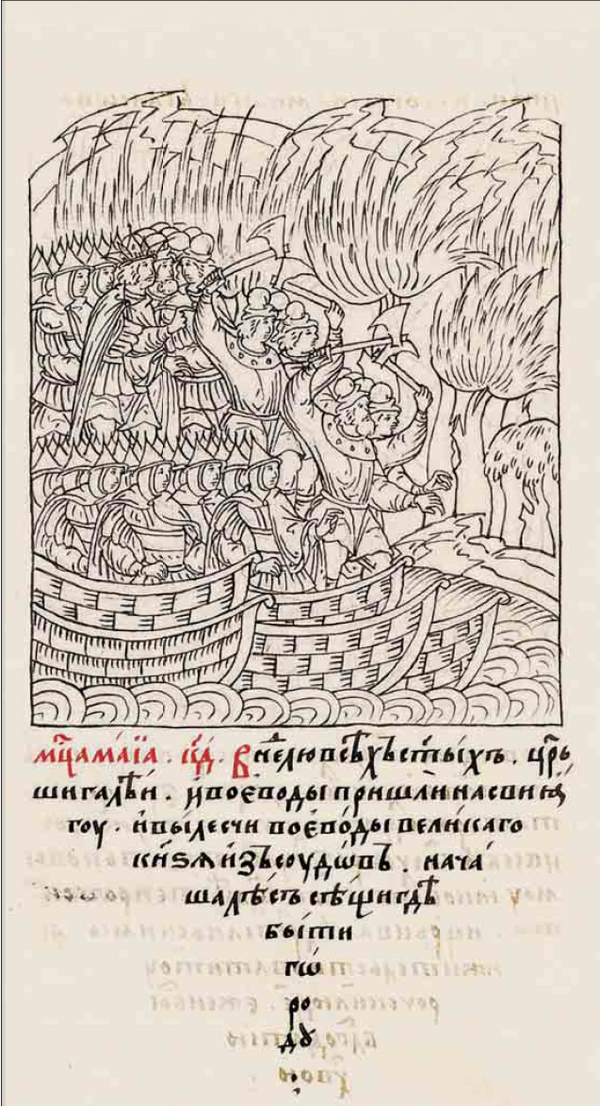 мц҃а ма́їа . к҃д . в не҃лю всѣхъ ст҃ыхъ . цр҃ь
шигалѣй . и воєводы пришли на свиѧ
гоу . и вылєсчи воєво́ды вели́каго
кн҃ѕѧ и́зъ соудѡ́въ . нача́
ша лѣ́съ сѣщи гдѣ
бы́ти
гѡ
ро
дꙋ
: